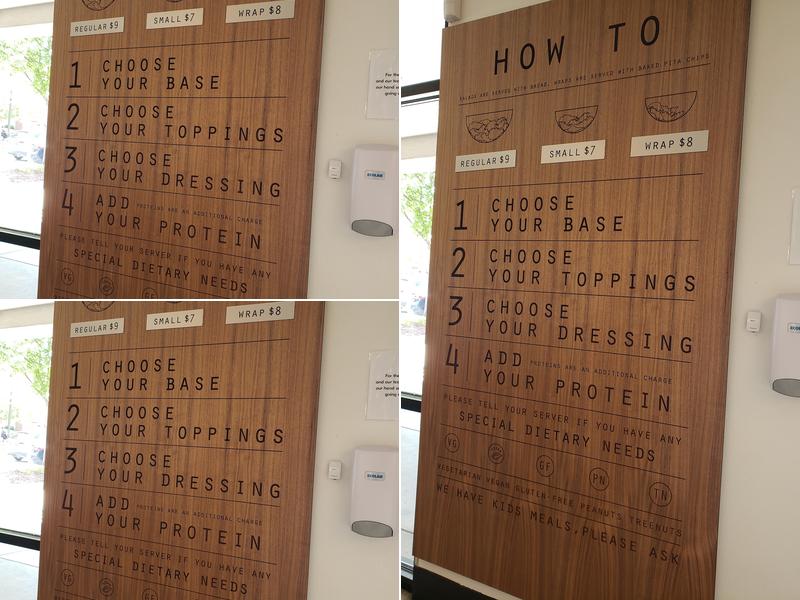 REGULAR $9
SMALL $7
WRAP $8
1 CHOOSE
YOUR BASE
2 CHOOSE
YOUR TOPPINGS
3 CHOOSE
YOUR DRESSING
4 ADD PROTEINS ARE AN ADDITIONAL CHARGE
YOUR PROTEIN
PLEASE TELL YOUR SERVER IF YOU HAVE ANY
SPECIAL DIETARY NEEDS
VG
For the
and our
our hand
going
ECOLAB
REGULAR $9
SMALL $7
WRAP $8
1 CHOOSE
YOUR BASE
2 CHOOSE
YOUR TOPPINGS
3 CHOOSE
YOUR DRESSING
4 ADD PROTEINS ARE AN ADDITIONAL CHARGE
YOUR PROTEIN
PLEASE TELL YOUR SERVER IF YOU HAVE ANY
SPECIAL DIETARY NEEDS
VG
For the
and our
our hand
going
ECOLAB
HOW TO
SALADS ARE SERVED WITH BREAD, WRAPS ARE SERVED WITH BAKED PITA CHIPS
REGULAR $9
SMALL $7
WRAP $8
1 CHOOSE
YOUR BASE
2 CHOOSE
YOUR TOPPINGS
3 CHOOSE
YOUR DRESSING
4 ADD PROTEINS ARE AN ADDITIONAL CHARGE
YOUR PROTEIN
PLEASE TELL YOUR SERVER IF YOU HAVE ANY
SPECIAL DIETARY NEEDS
VG GF PN TN
VEGETARIAN VEGAN GLUTEN-FREE PEANUTS TREENUTS
WE HAVE KIDS MEALS, PLEASE ASK